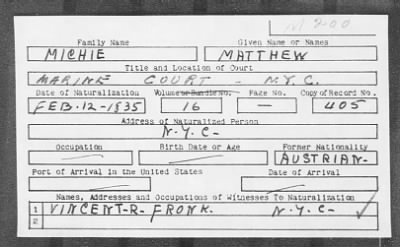 Family Name Given Name or Names
MICHIE MATTHEW
Title and Location of Court
MARINE COURT - N.Y.C.
Date of Naturalization Volume or Bundle No. Page No. Copy of Record No.
FEB-12-1835 16 — 405
Address of Naturalized Person
N.Y.C-
Occupation Birth Date or Age Former Nationality
AUSTRIAN-
Port of Arrival in the United States Date of Arrival
Names, Addresses and Occupations of Witnesses To Naturalization
1 VINCENT-R- FRONK. N.Y.C-
2